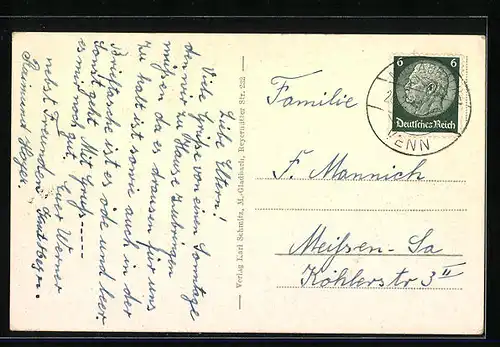 Liebe Eltern!
Viele Grüße von einem Sonntage
den wir zu Hause zubringen
müssen da es draussen für uns
zu kalt ist sowie auch in der
Brieftasche ist es öde und leer.
Sonst geht
es mir noch gut. Mit Gruß----
Euer Werner
nebst Freunden
Raimund
— Verlag Karl Schmitz, M.-Gladbach, Reyersmitter Str. 232 —
6 6
Deutsches Reich
VENN
Familie
F. Mannich
Meißen-Sa
Köhlerstr 3 II